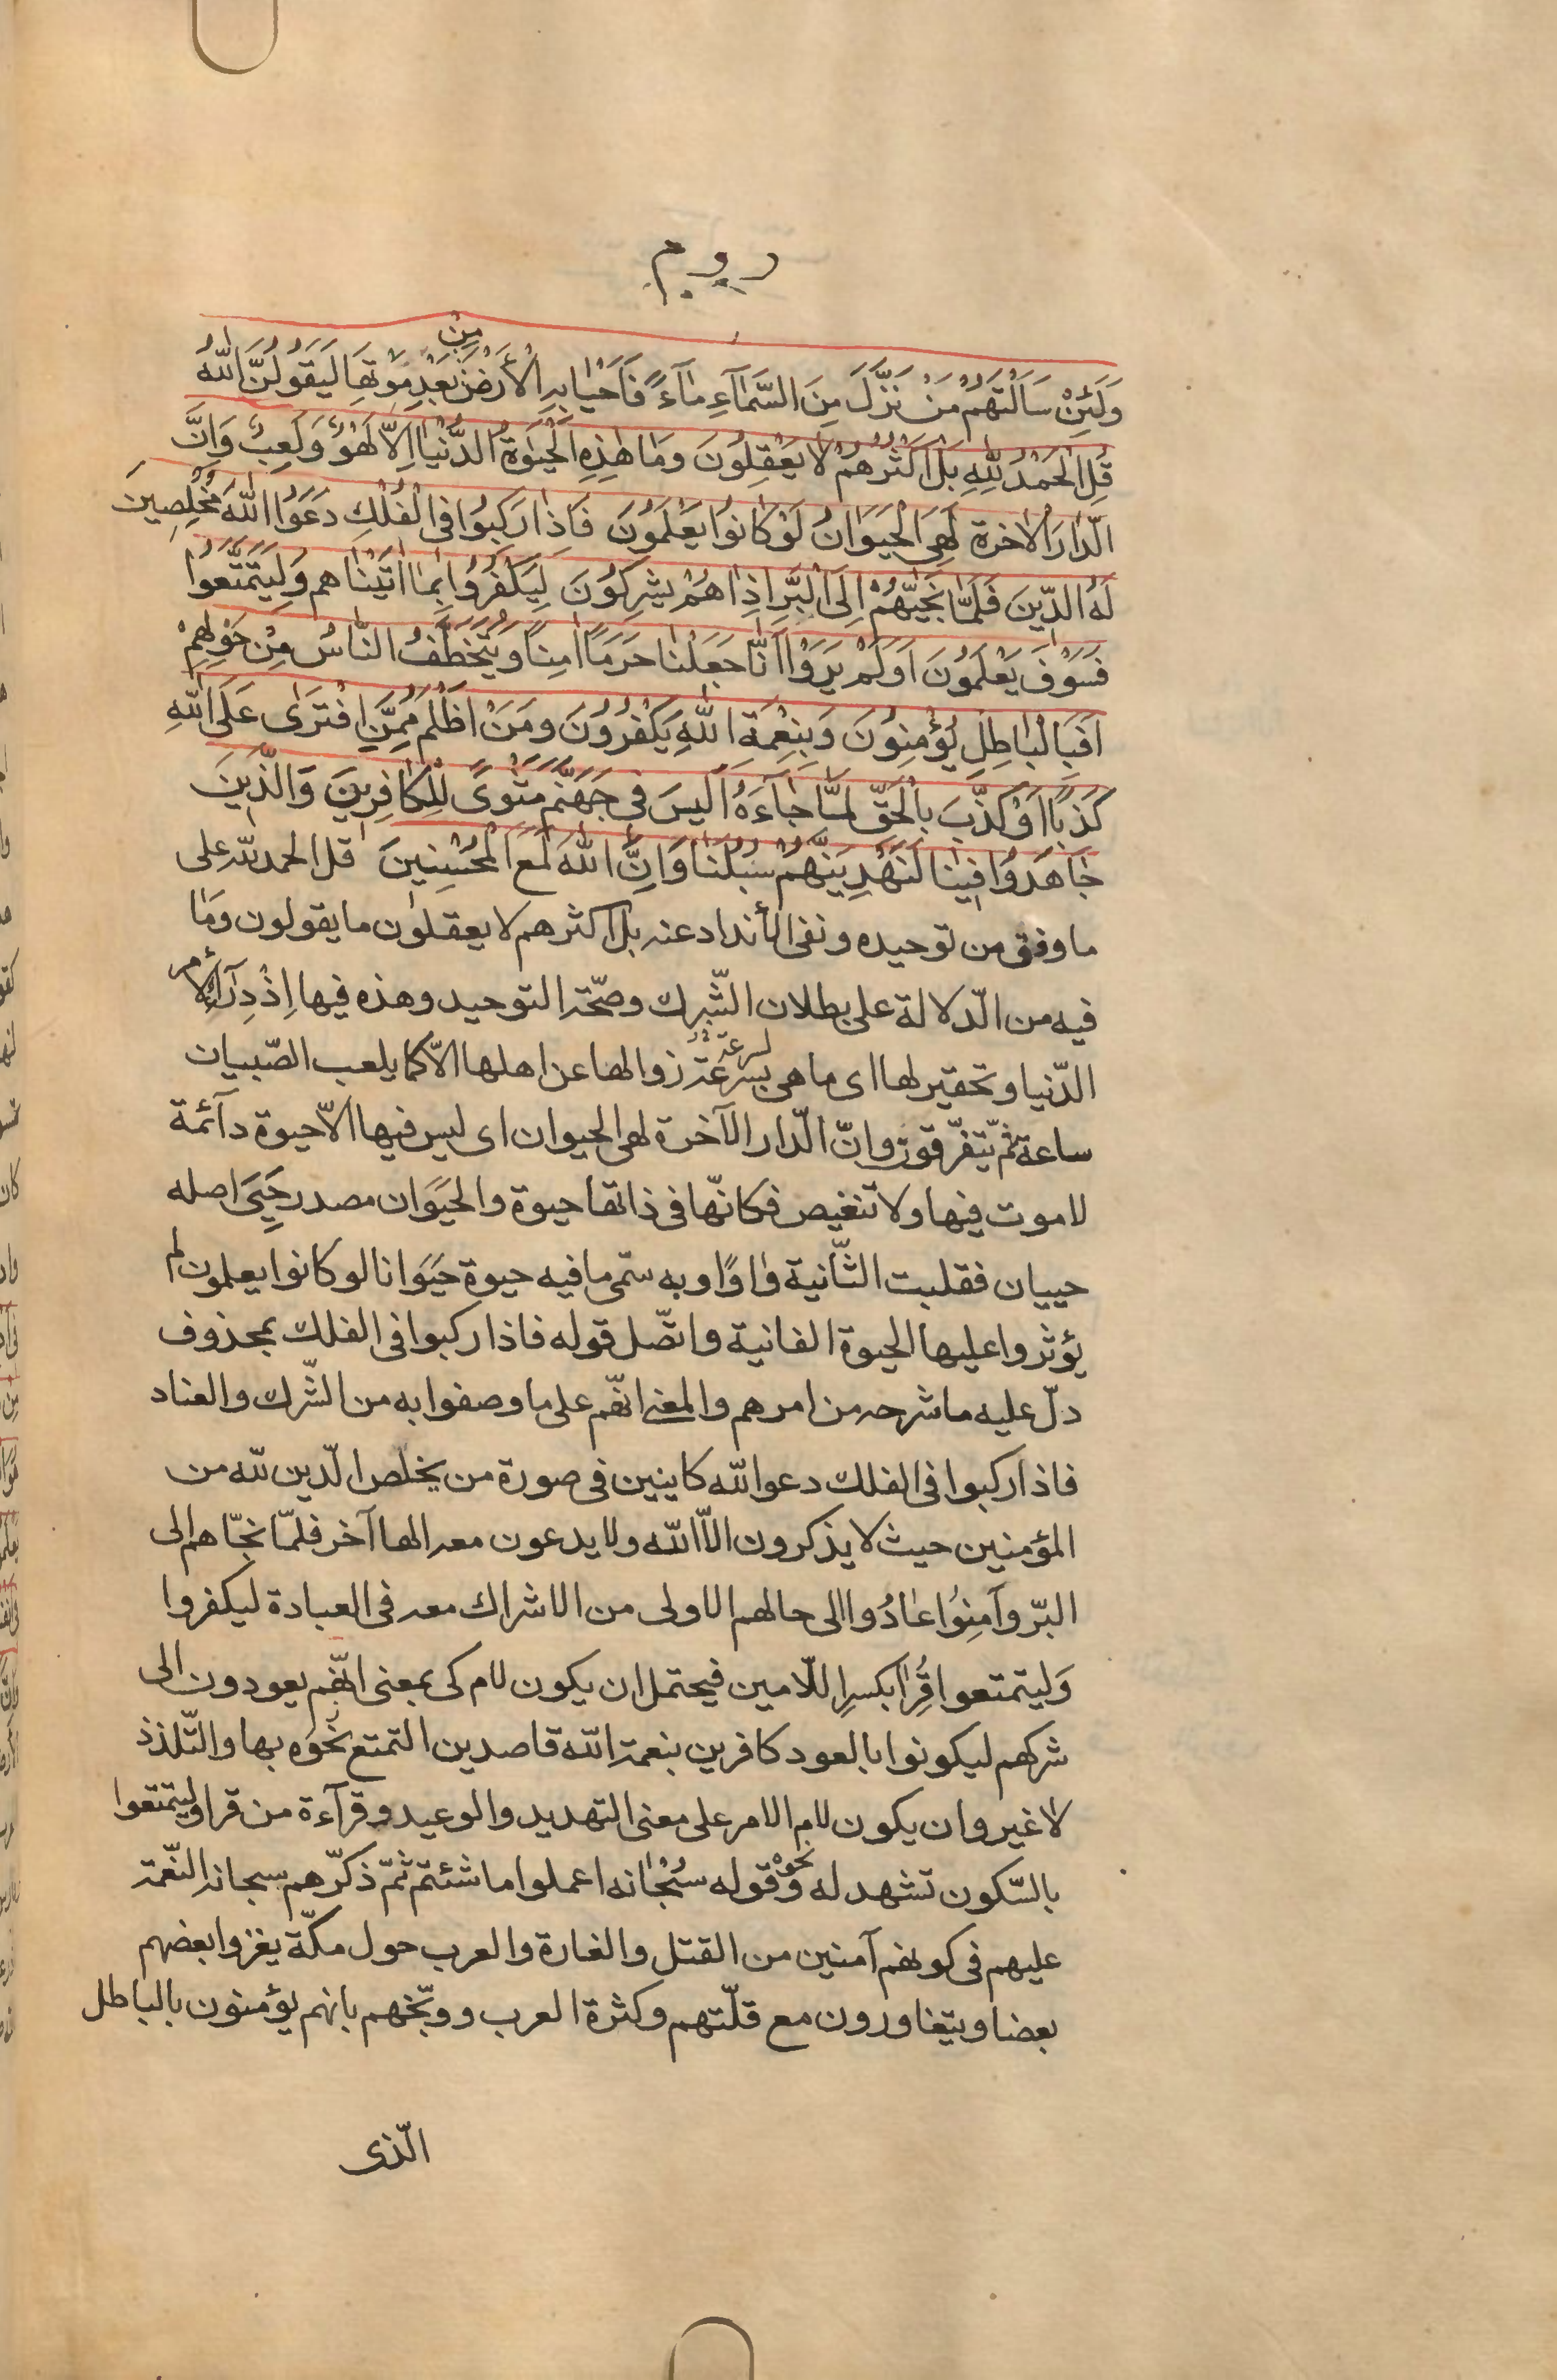 روم
من
وَلَئِنْ سَاَلْتَهُمْ مَنْ نَزَّلَ مِنَ السَّمَآءِ مٰآءً فَاَحْيٰا بِهِ الْأَرْضَ بَعْدِ مَوْتِهَا لَيَقُولُنَّ اللّٰهُ
قُلِ الْحَمْدُ لِلّٰهِ بَلْ اَكْثَرُهُمْ لٰا يَعْقِلُونَ وَمٰا هٰذِهِ الْحَيٰوةُ الدُّنْيٰا اِلّاٰ لَهْوٌ وَلَعِبٌ وَاِنَّ
الدّٰارَ الْاٰخرة لَهِىَ الْحَيَوٰانُ لَوْ كٰانُوا يَعْلَمُونَ فَاِذٰا رَكِبُوا فِى الْفُلْكِ دَعَوُا اللّٰهَ مُخْلِصِينَ
لَهُ الدّينَ فَلَمّٰا نَجّٰيهُمْ اِلَى الْبَرِّ اِذٰا هُمْ يُشْرِكُونَ لِيَكْفُرُوا بِمٰا اٰتَيْنٰاهم وَلِيَتَمَتَّعُوا
فَسَوْفَ يَعْلَمُونَ اَوَلَمْ يَرَوْا اَنّٰا جَعَلْنٰا حَرَمًا اٰمِنًا وَيُتَخَطَّفُ النّٰاسُ مِنْ حَوْلِهِمْ
اَفَبِالْبٰاطِلِ يُؤْمِنُونَ وَبِنِعْمَةِ اللّٰهِ يَكْفُرُونَ ومَنْ اَظْلَمُ مِمَّنِ افْتَرٰى عَلَى اللّٰهِ
كَذِبًا اَوْ كَذَّبَ بِالْحَقِّ لَمّٰا جٰآءَهُ اَلَيسَ فى جَهَنَّمَ مَثْوىً لِلْكٰافِرينَ وَالَّذينَ
جٰاهَدُوا فينٰا لَنَهْدِيَنَّهُمْ سُبُلَنٰا وَاِنَّ اللّٰهَ لَمَعَ الْمُحْسِنينَ قل الحمد للّه على
ما وفق من توحيده ونفى الأنداد عنه بل اكثرهم لا يعقلون ما يقولون ومٰا
فيه من الدّلالة على بطلان الشّرك وصحّة التوحيد وهذه فيها اِذْدِرَآء لأمر
لسرعة
الدّنيا وتحقير لها اى ما هى بسرعة زوالها عن اهلها الاّ كما يلعب الصّبيان
ساعة ثمّ يتفرّقون وانّ الدّار الآخرة لهى الحيوان اى ليس فيها الاّ حيوة دآئمة
لا موت فيها ولا تنغيص فكانّها فى ذاتها حيوة والحَيَوَان مصدر حَيِىَ اصله
حييان فقلبت الثّانية وٰاوًا وبه سمّى ما فيه حيوة حَيَوَانا لو كانوا يعلمون لم
يؤثروا عليها الحيوة الفانية واتّصل قوله فاذا ركبوا فى الفلك بمحذوف
دلّ عليه ما شرحه من امرهم والمعنى انّهم على ما وصفوا به من الشّرك والعناد
فاذا ركبوا فى الفلك دعوا اللّه كاينين فى صورة من يخلّص الدّين للّه من
المؤمنين حيث لا يذكرون الاّ اللّه ولا يدعون معه الها آخر فلمّا نجّاهم الى
البرّ وآمِنوُا عٰادُوا الى حالهم الاولى من الاشراك معه فى العبادة ليكفروا
وَليتمتعوا قُرِأ بكسرِ اللّامين فيحتمل ان يكون لام كى بمعنى انّهم يعودون الى
شركهم ليكونوا بالعود كافرين بنعمة اللّه قاصدين التمتع نَحْوَه بها والتّلذذ
لا غير وان يكون لام الامر على معنى التهديد والوعيد وقرآءة من قرا وليتمتعوا
نحوه
بالسّكون تشهد له وقوله سُبْحٰانه اعملوا ما شئتم ثمّ ذكّرهم سبحانه النّعمة
عليهم فى كونهم آمنين من القتل والغارة والعرب حول مكّة يغزوا بعضهم
بعضا ويتغاورون مع قلّتهم وكثرة العرب ووبّخهم بانهم يؤمنون بالباطل
الّذى